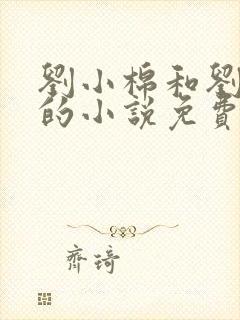 劉小棉和劉
的小說免費
齊琦